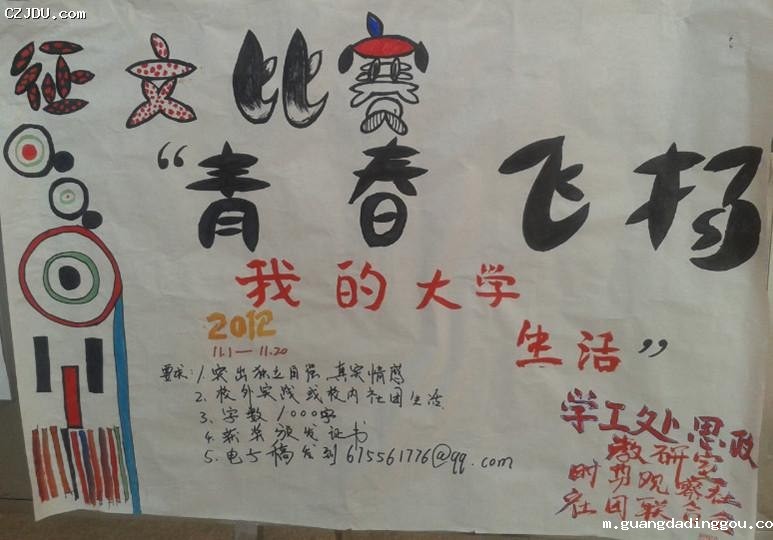 CZJDU.com
征文比赛
“青春飞扬
我的大学
生活”
2012
11.1—11.20
要求:1.突出独立自强真实情感
2、校外实战或校内社团生活
3、字数1000字
4.获奖颁发证书
5.电子稿发到675561776@qq.com
学工处思政
教研室
时事观察社
社团联合会
m.guangdadinggou.co